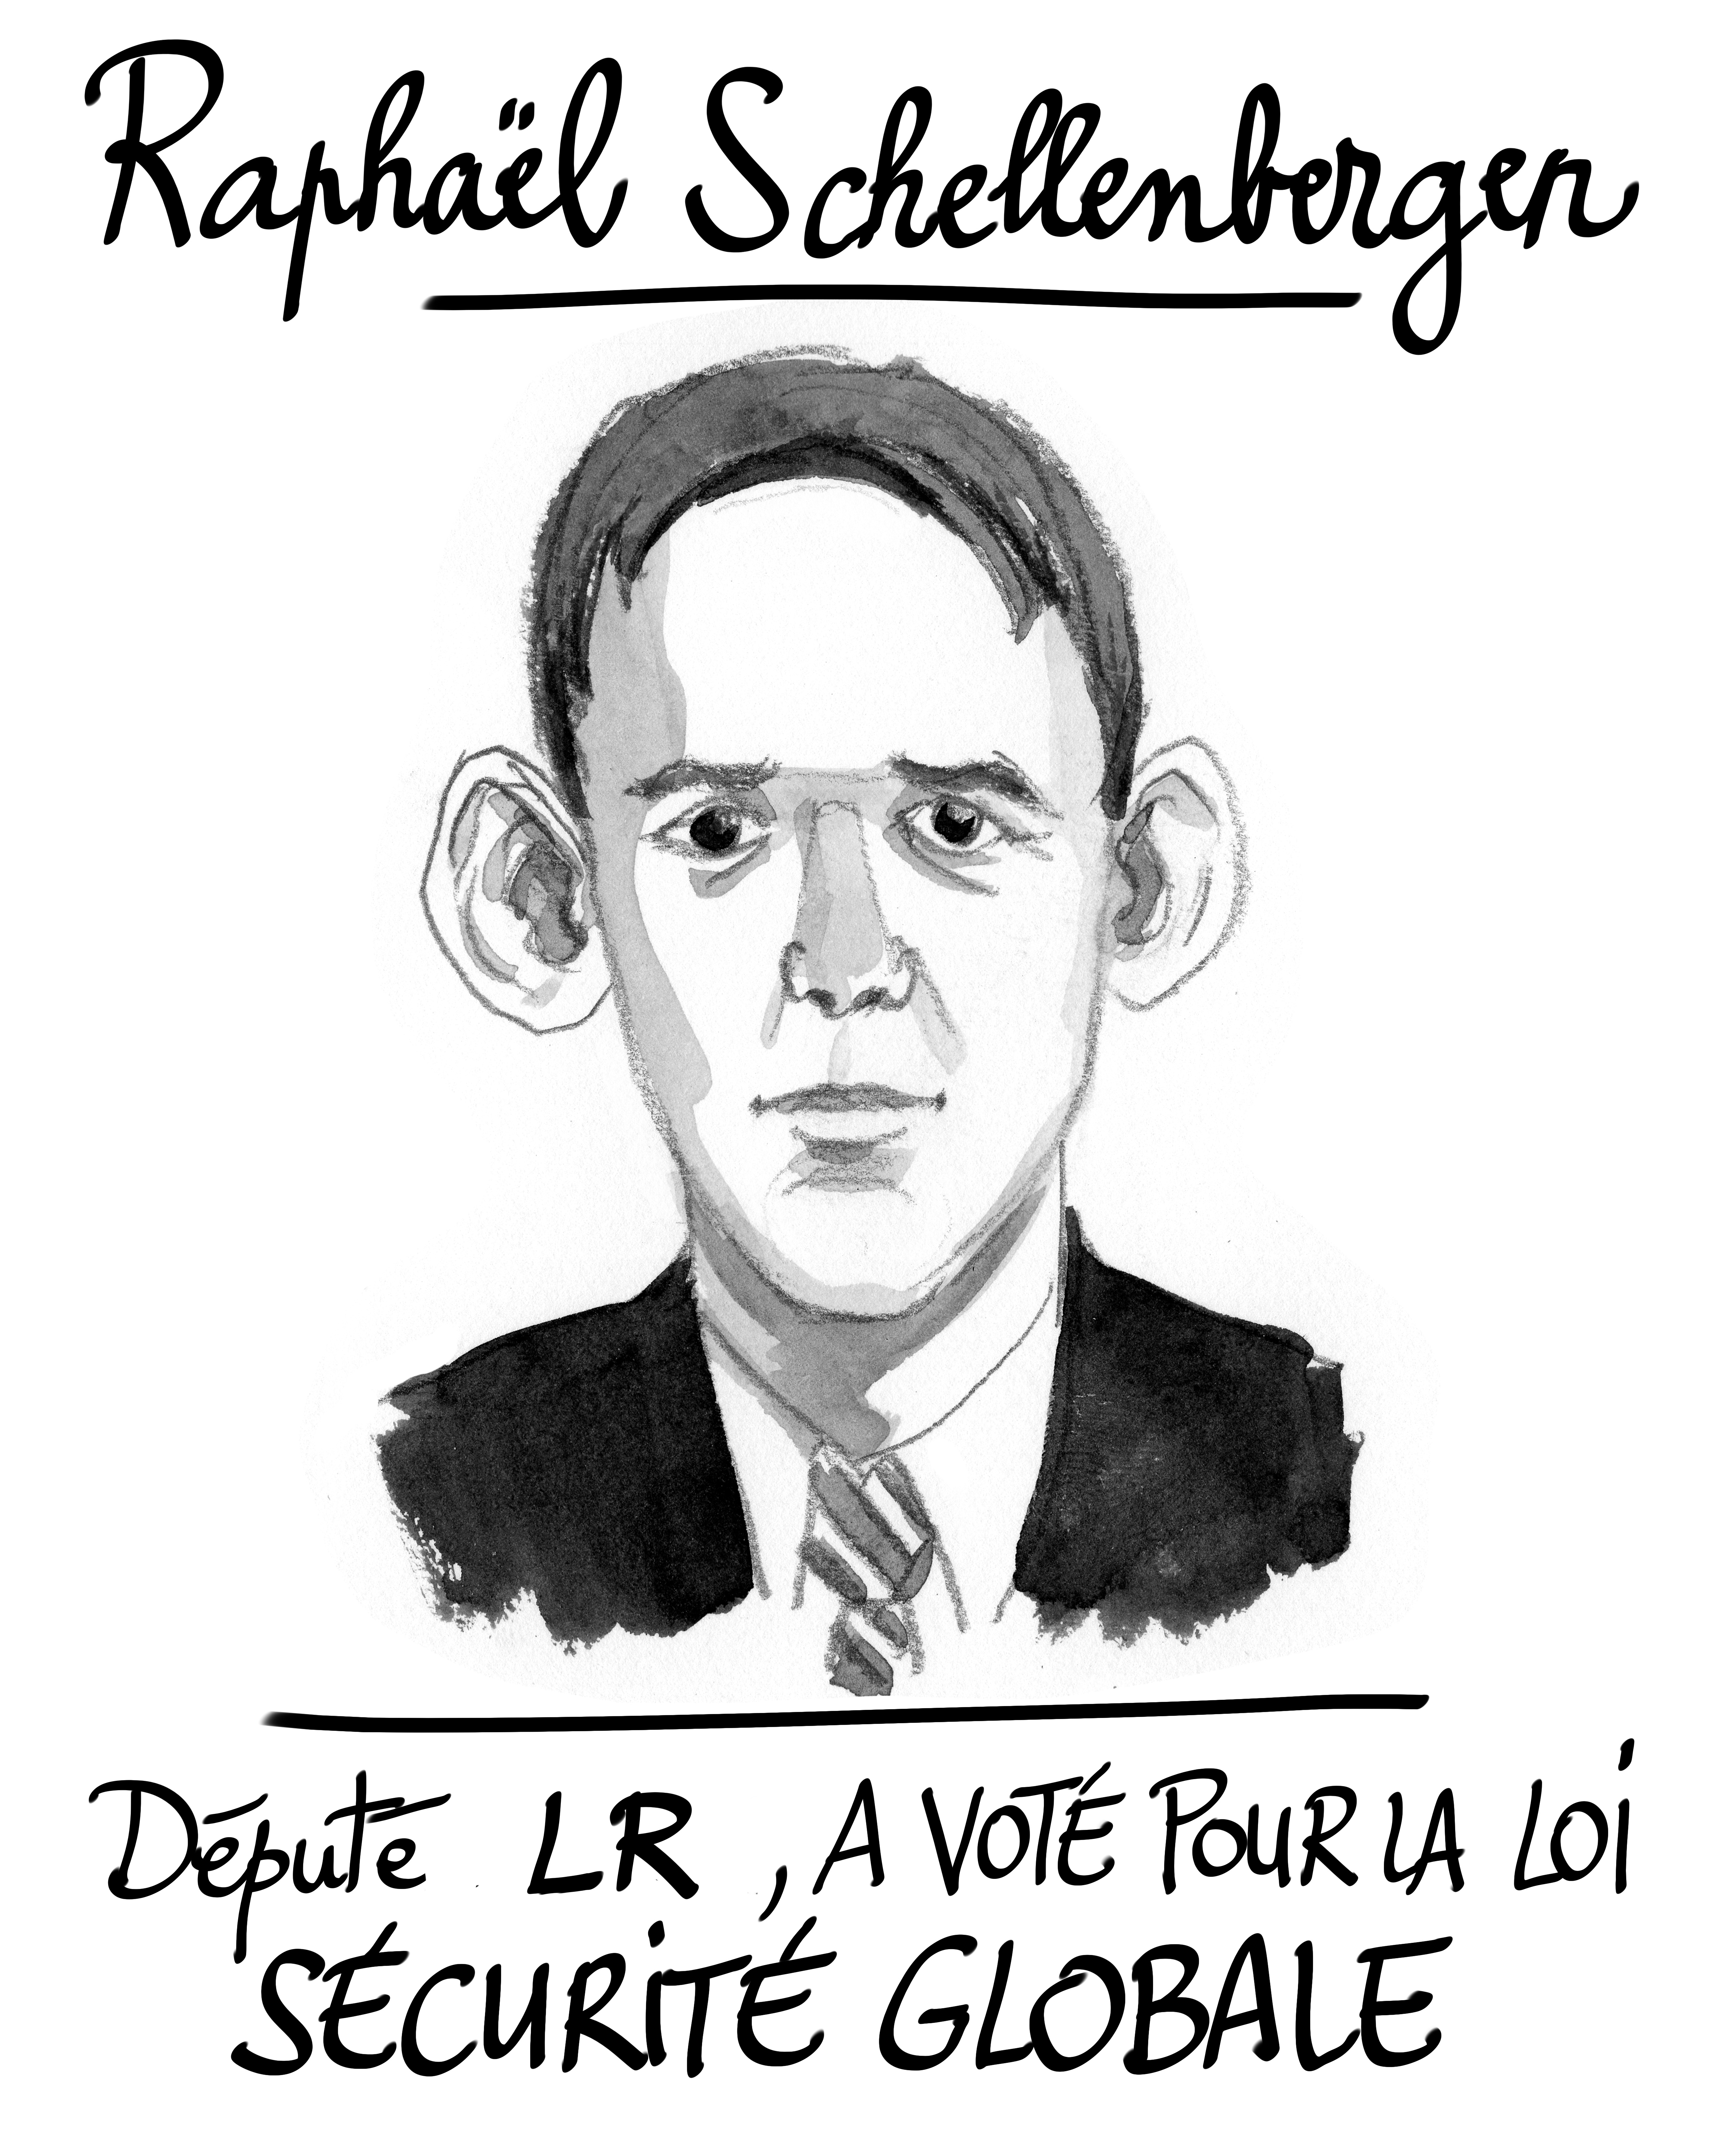 Raphaël Schellenberger
Député LR, A VOTÉ POUR LA LOI
SÉCURITÉ GLOBALE